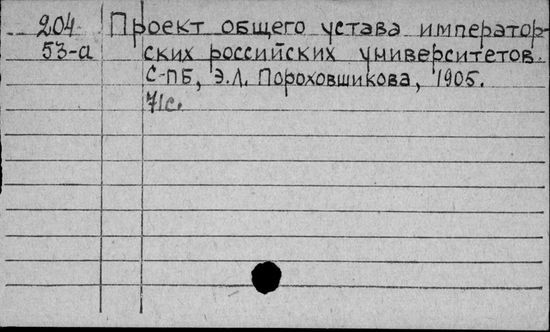 204 Проект общего устава император-
53-а ских российских университетов.
С-ПБ, Э.Л. Пороховшикова, 1905.
71с.